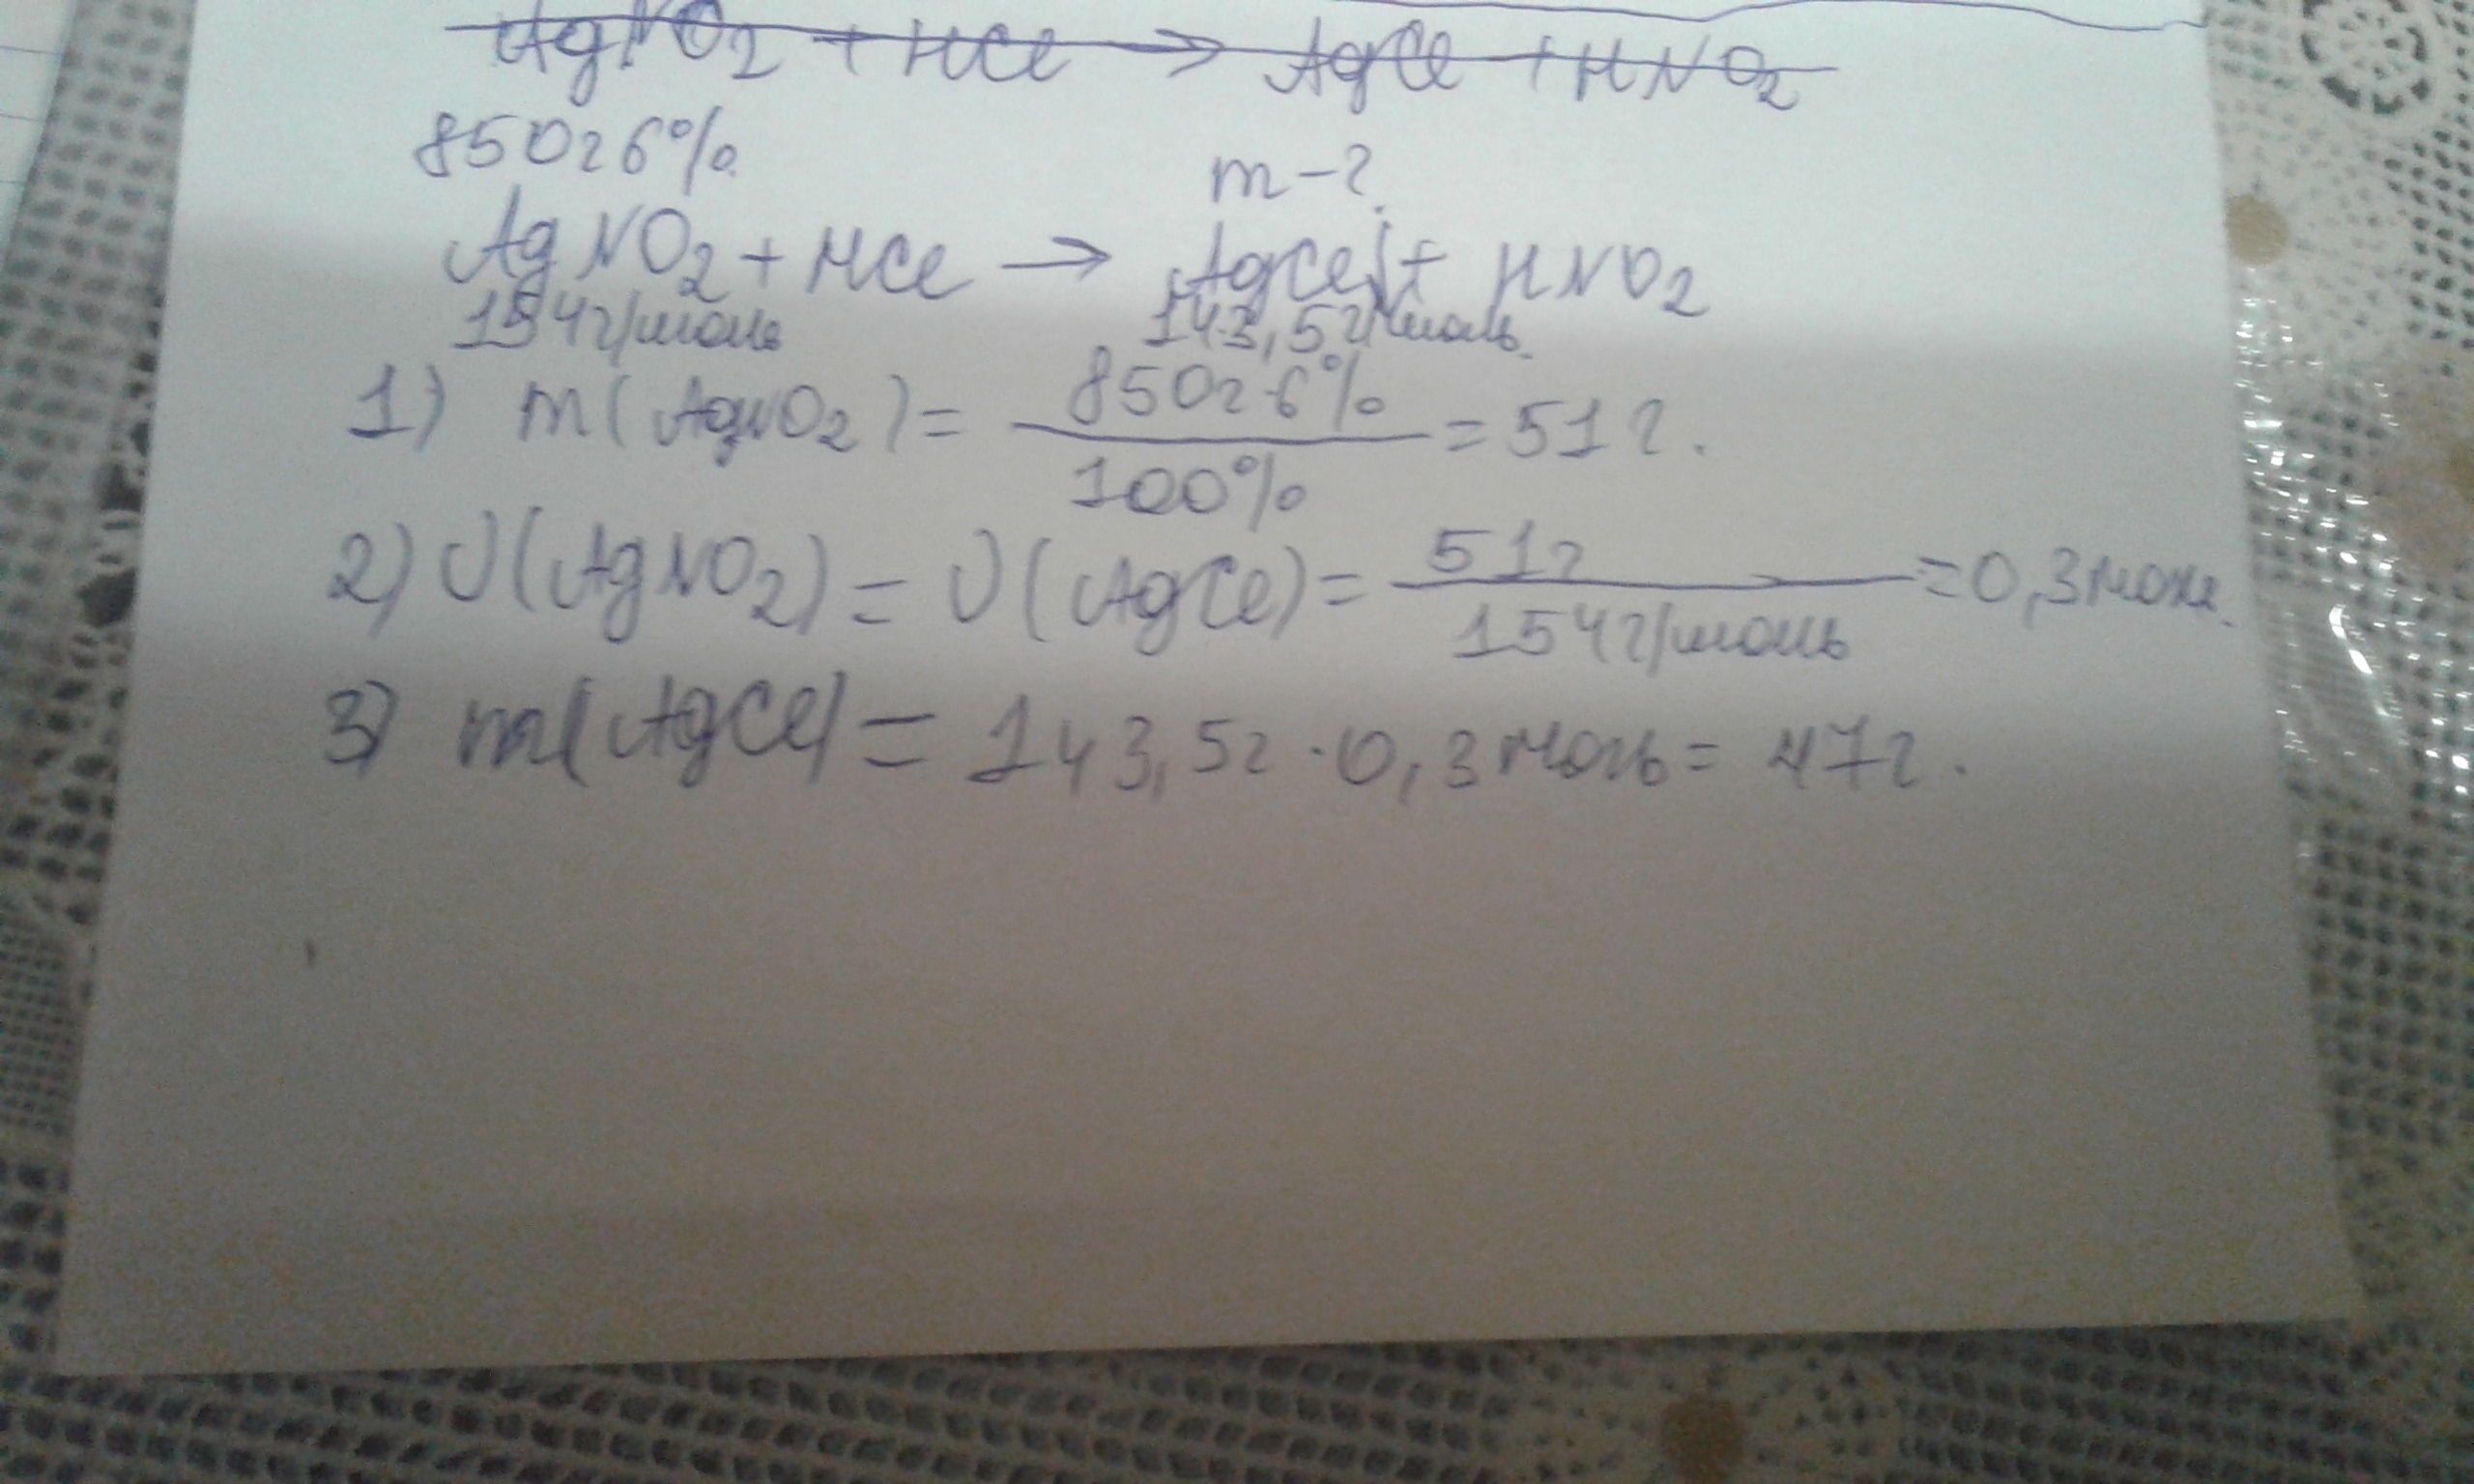 AgNO₂ + HCl → AgCl + HNO₂
850г 6%. m-?
AgNO₂ + HCl → AgCl↓ + HNO₂
154г/моль 143,5г/моль.
1) m(AgNO₂) = 850г·6% / 100% = 51г.
2) ν(AgNO₂) = ν(AgCl) = 51г / 154г/моль = 0,3моль.
3) m(AgCl) = 143,5г · 0,3моль = 47г.